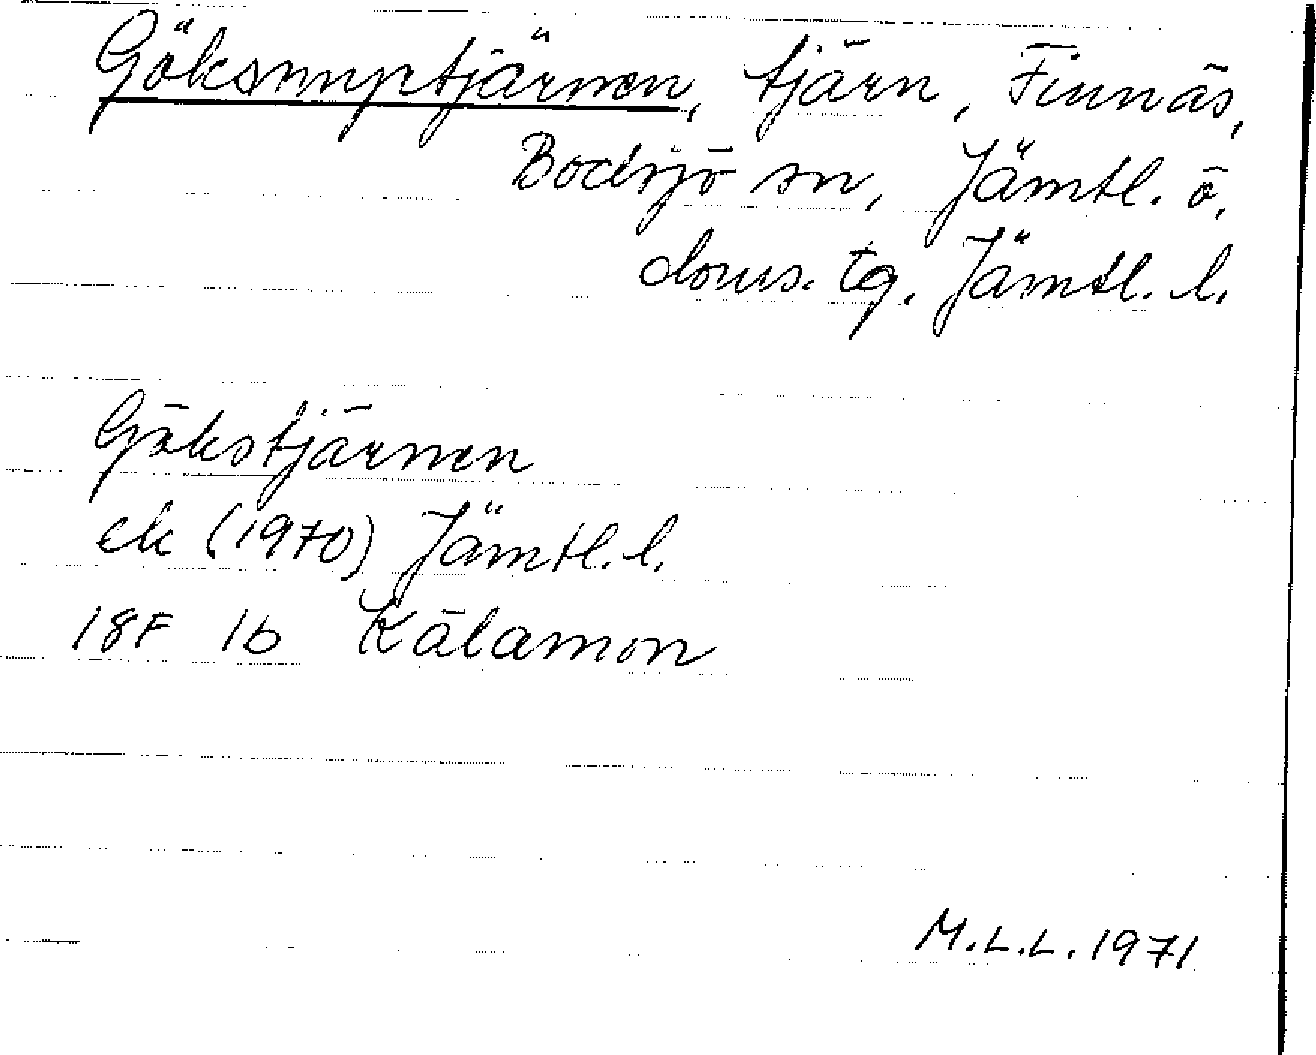 Göksmyrtjärnen, tjärn, Finnäs,
Bodsjö sn, Jämtl. ö.
doms. tg. Jämtl. l.
Gökstjärnen
ek (1970) Jämtl. l.
18F 1b Kälamon
M.L.L. 1971